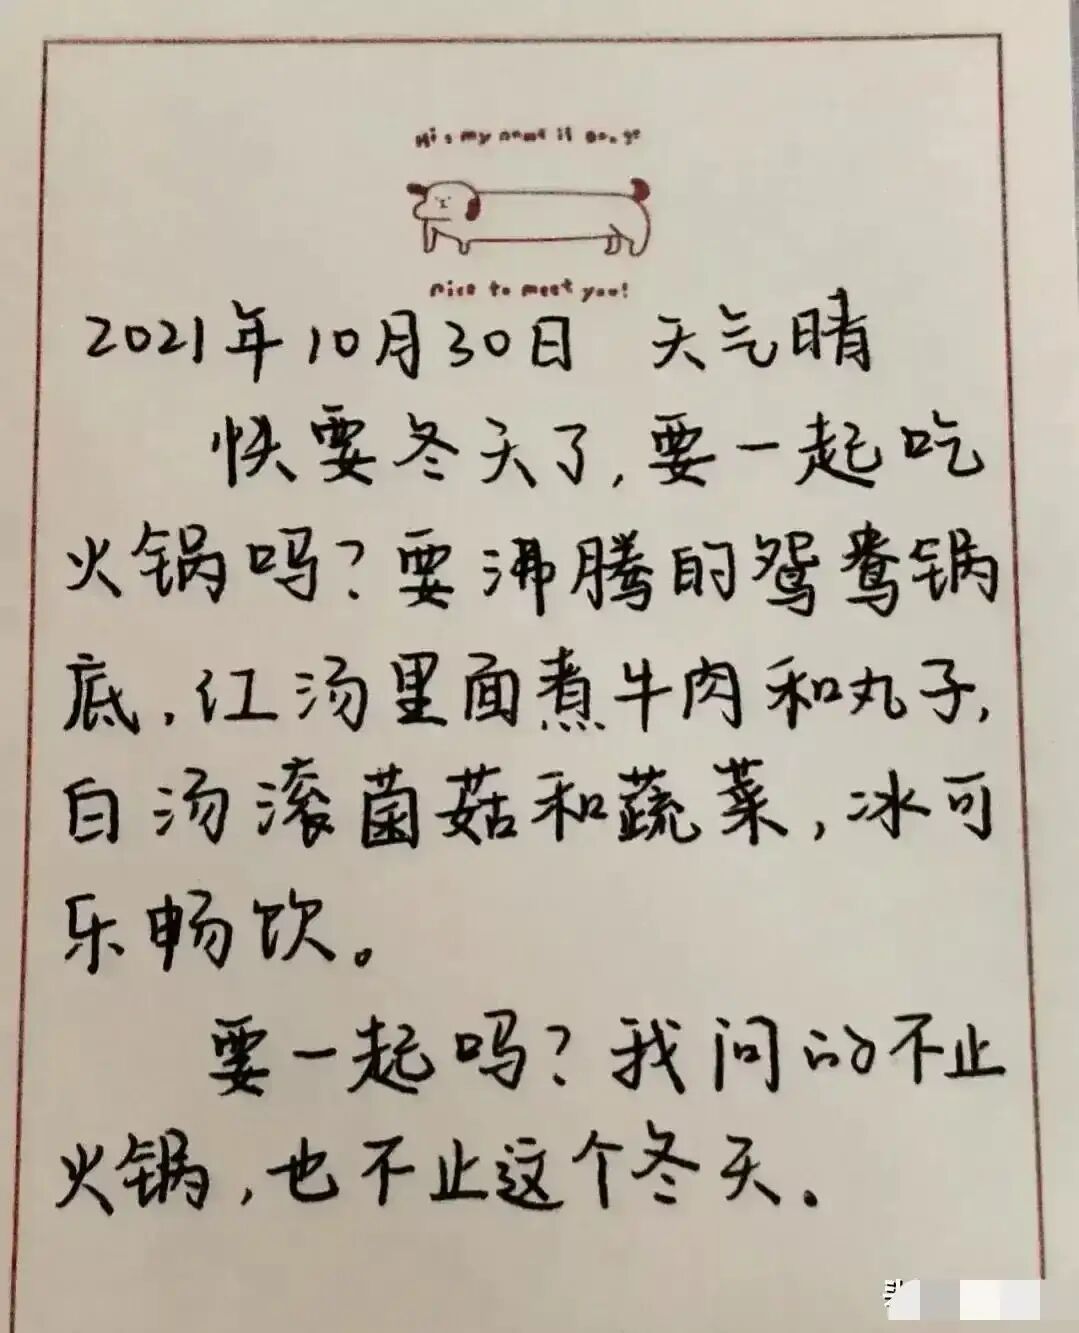 Hi my name is
nice to meet you!
2021年10月30日 天气晴
快要冬天了,要一起吃
火锅吗?要沸腾的鸳鸯锅
底,红汤里面煮牛肉和丸子,
白汤滚菌菇和蔬菜,冰可
乐畅饮。
要一起吗?我问的不止
火锅,也不止这个冬天。